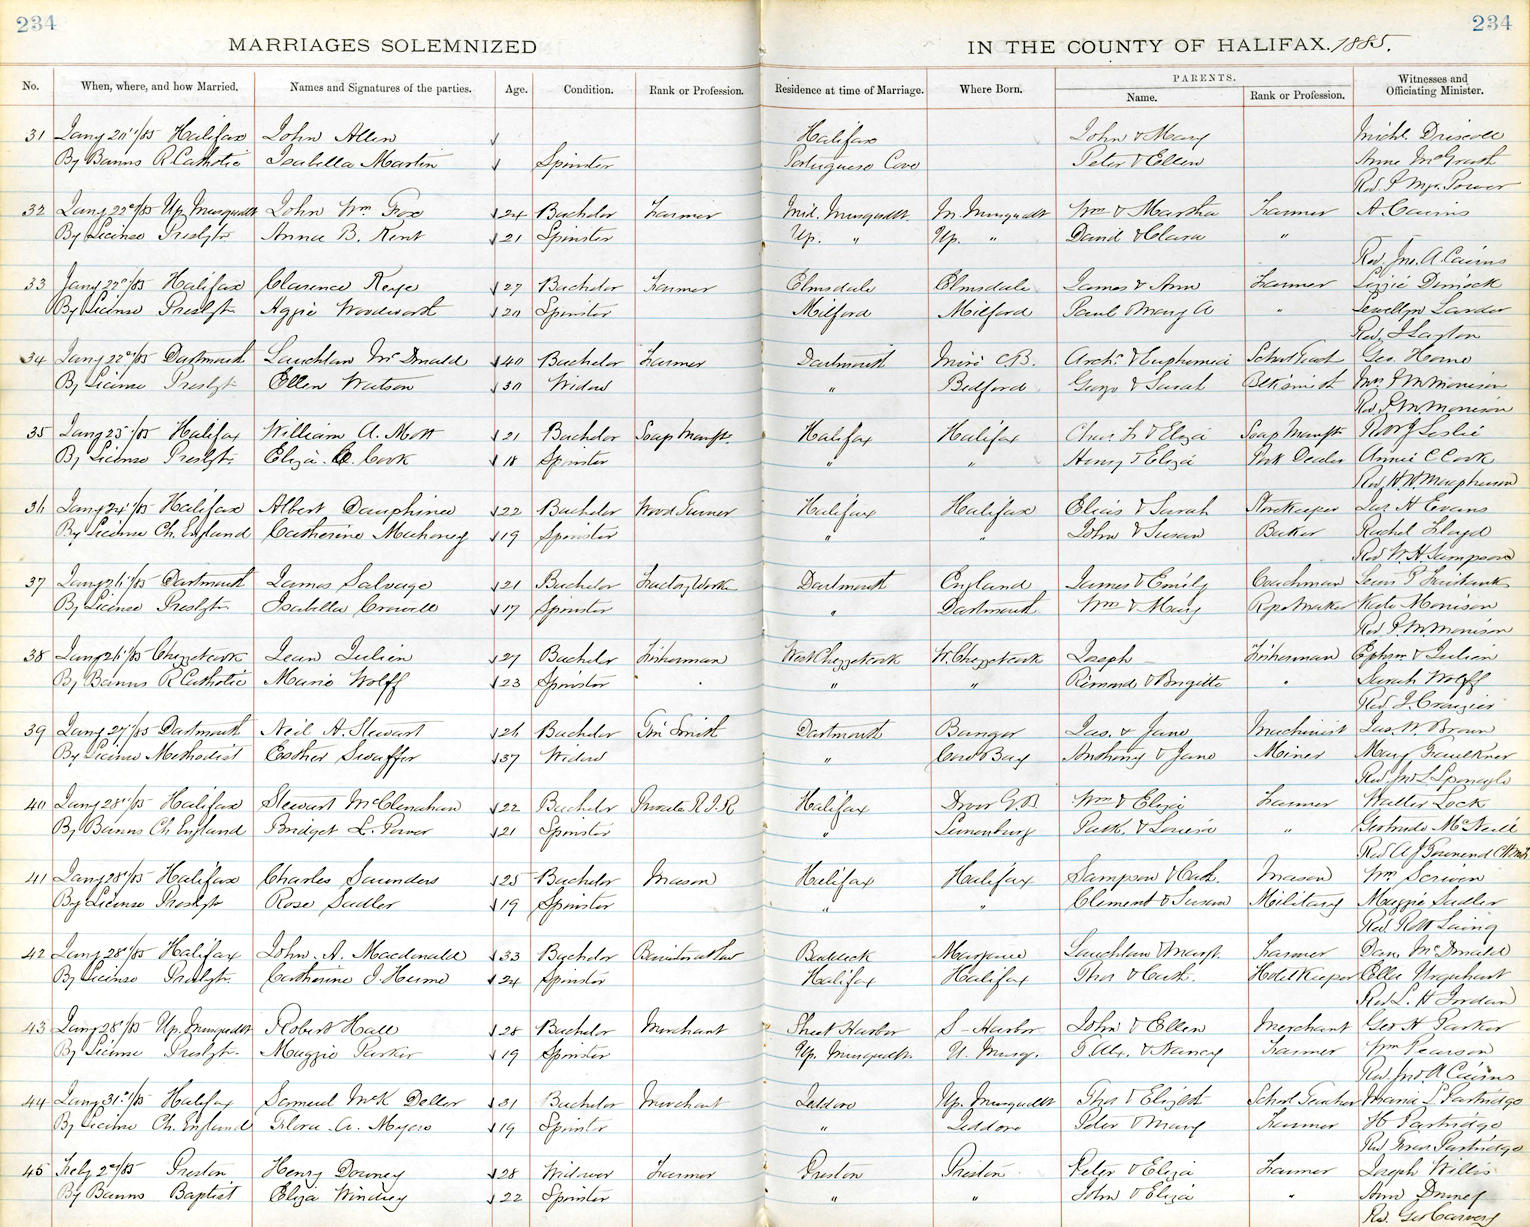 234 234
MARRIAGES SOLEMNIZED IN THE COUNTY OF HALIFAX. 1885.
No. When, where, and how Married. Names and Signatures of the parties. Age. Condition. Rank or Profession. Residence at time of Marriage. Where Born. PARENTS. Name. Rank or Profession. Witnesses and Officiating Minister.
31 Jany /85 Halifax John Allen Halifax John & Mary Michl. Driscoll
By Banns R Catholic Isabella Martin Spinster Portuguese Cove Peter & Ellen Anne McGrath
Rev. Power
32 Jany 22d/85 Up. Musquodt John Wm Fox 24 Bachelor Farmer Mid. Musquodt. M. Musquodt Wm & Martha Farmer A. Cairns
By License Presbytn Anna B. Kent 21 Spinster Up. " Up. " David & Clara "
Rev. Jno. A. Cairns
33 Jany 22d/85 Halifax Clarence Keye 27 Bachelor Farmer Elmsdale Elmsdale James & Ann Farmer Lizzie Dimock
By License Presbytn Aggie Woodworth 20 Spinster Milford Milford Paul Mary A " Lewellyn
Rev. J Layton
34 Jany 22d/85 Dartmouth Lauchlan McDonald 40 Bachelor Farmer Dartmouth C.B. Archd & Euphemia School Teach Geo. Horne
By License Presbytn Ellen Watson 30 Widow " Bedford George & Sarah Blksmith Mrs P M Morrison
Rev P. M. Morrison
35 Jany /85 Halifax William A. Mott 21 Bachelor Soap Manftr Halifax Halifax Chas. & Eliza Soap Manftr Leslie
By License Presbytn Eliza Cook 18 Spinster " " Henry & Eliza Pork Dealer Annie C Cook
Rev. Macpherson
36 Jany 24/85 Halifax Albert Dauphinee 22 Bachelor Wood Turner Halifax Halifax Elias & Sarah Storekeeper Jas H Evans
By License Ch. England Catherine Mahoney 19 Spinster " " John & Susan Baker Rachel Lloyd
Rev W. H. Sampson
37 Jany /85 Dartmouth James Salvage 21 Bachelor Factory Work Dartmouth England James & Emily Coachman Lewis P Fairbanks
By License Presbytn Isabella Crowell 17 Spinster " Dartmouth Wm & Mary Rope Maker Kate Morrison
Rev P. M. Morrison
38 Jany /85 Chezzetcook Jean Julien 27 Bachelor Fisherman West Chezzetcook W. Chezzetcook Joseph Fisherman Ephrm Julien
By Banns R Catholic Marie Wolff 23 Spinster " " Rimond & Brigitte " Sarah Wolff
Rev J.
39 Jany 27/85 Dartmouth Neil A. Stewart 26 Bachelor Tin Smith Dartmouth Bangor Jas. & Jane Machinist Jas. W. Brown
By License Methodist Esther Swaffer 37 Widow " Cow Bay Anthony & Jane Miner Mary Faulkner
Rev. Jno L Sponagle
40 Jany 28/85 Halifax Stewart McClenahan 22 Bachelor Private R.I.R Halifax Wm & Eliza Farmer Walter Lock
By Banns Ch England Bridget L. Power 21 Spinster " Lunenburg Patk. & Louisa " Gertrude McNeill
Rev A J Townend
41 Jany 28/85 Halifax Charles Saunders 25 Bachelor Mason Halifax Halifax Sampson & Cath. Mason Wm Scriven
By License Presbytn Rose Sadler 19 Spinster " " Clement & Susan Military Maggie Sadler
Rev. R Laing
42 Jany 28/85 Halifax John. A. Macdonald 33 Bachelor Barrister at Law Baddeck Margaree Lauchlan & Margt. Farmer McDonald
By License Presbytn. Catherine J Hume 24 Spinster Halifax Halifax Thos & Cath. Hotel Keeper Ella Urquhart
Rev. L. H Jordan
43 Jany 28/85 Up. Musquodt Robert Hall 28 Bachelor Merchant Sheet Harbor S-Harbor John & Ellen Merchant Geo H Parker
By License Presbytn. Maggie Parker 19 Spinster Up. Musquodt. U. Musq. & Nancy Farmer Wm Pearson
Rev Jno A Cairns
44 Jany 31/85 Halifax Samuel McK Deller 31 Bachelor Merchant Jeddore Up. Musquodt Thos & Elizbth School Teacher Maria L Partridge
By License Ch. England Flora A. Myers 19 Spinster " Jeddore Peter & Mary Farmer H Partridge
Rev Fras. Partridge
45 Feby 2d/85 Preston Henry Downey 28 Widower Farmer Preston Preston Peter & Eliza Farmer Joseph Willis
By Banns Baptist Eliza Windsey 22 Spinster " " John & Eliza " Ann Downey
Rev. Geo Carvery